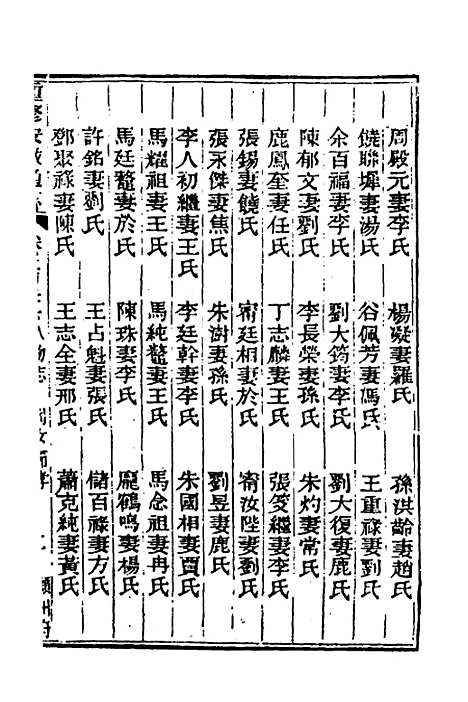 周殿元妻李氏　楊凝妻羅氏　孫淇齡妻趙氏
饒聯墀妻湯氏　谷佩芳妻馮氏　王重祿妻劉氏
余百福妻李氏　劉大筠妻李氏　劉大復妻鹿氏
陳郁文妻劉氏　李長榮妻孫氏　朱灼妻常氏
鹿鳳奎妻任氏　丁志麟妻王氏　張笅繼妻李氏
張錫妻饒氏　甯廷相妻於氏　甯汝陛妻劉氏
張永傑妻焦氏　朱澍妻孫氏　劉昱妻鹿氏
李人初繼妻王氏　李廷幹妻李氏　朱國相妻賈氏
馬耀祖妻王氏　馬純鼇妻王氏　馬念祖妻冉氏
馬廷鼇妻於氏　陳珠妻李氏　龐鶴鳴妻楊氏
許銘妻劉氏　王占魁妻張氏　儲百祿妻方氏
鄧聚祿妻陳氏　王志全妻邢氏　蕭克純妻黃氏
重修安徽通志
人物志